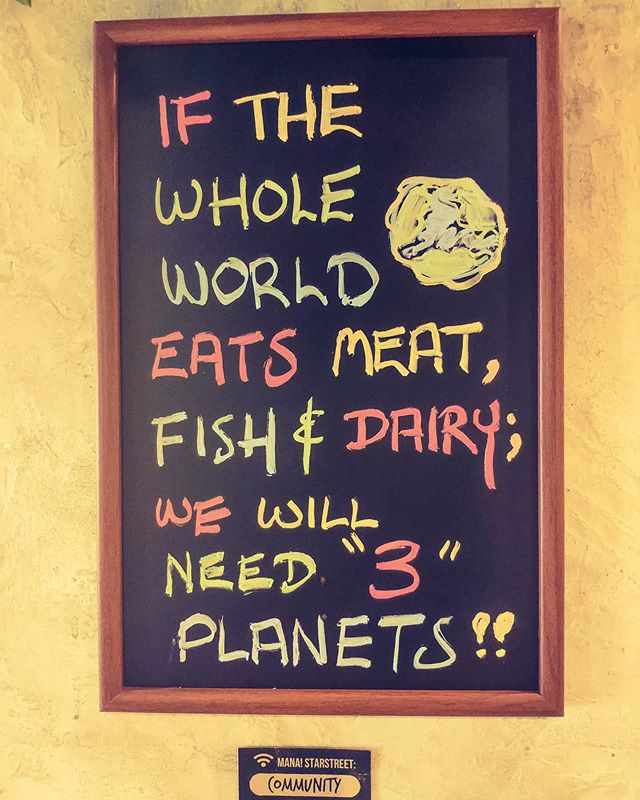 IF THE
WHOLE
WORLD
EATS MEAT,
FISH & DAIRY;
WE WILL
NEED "3"
PLANETS!!
MANA! STARSTREET:
COMMUNITY